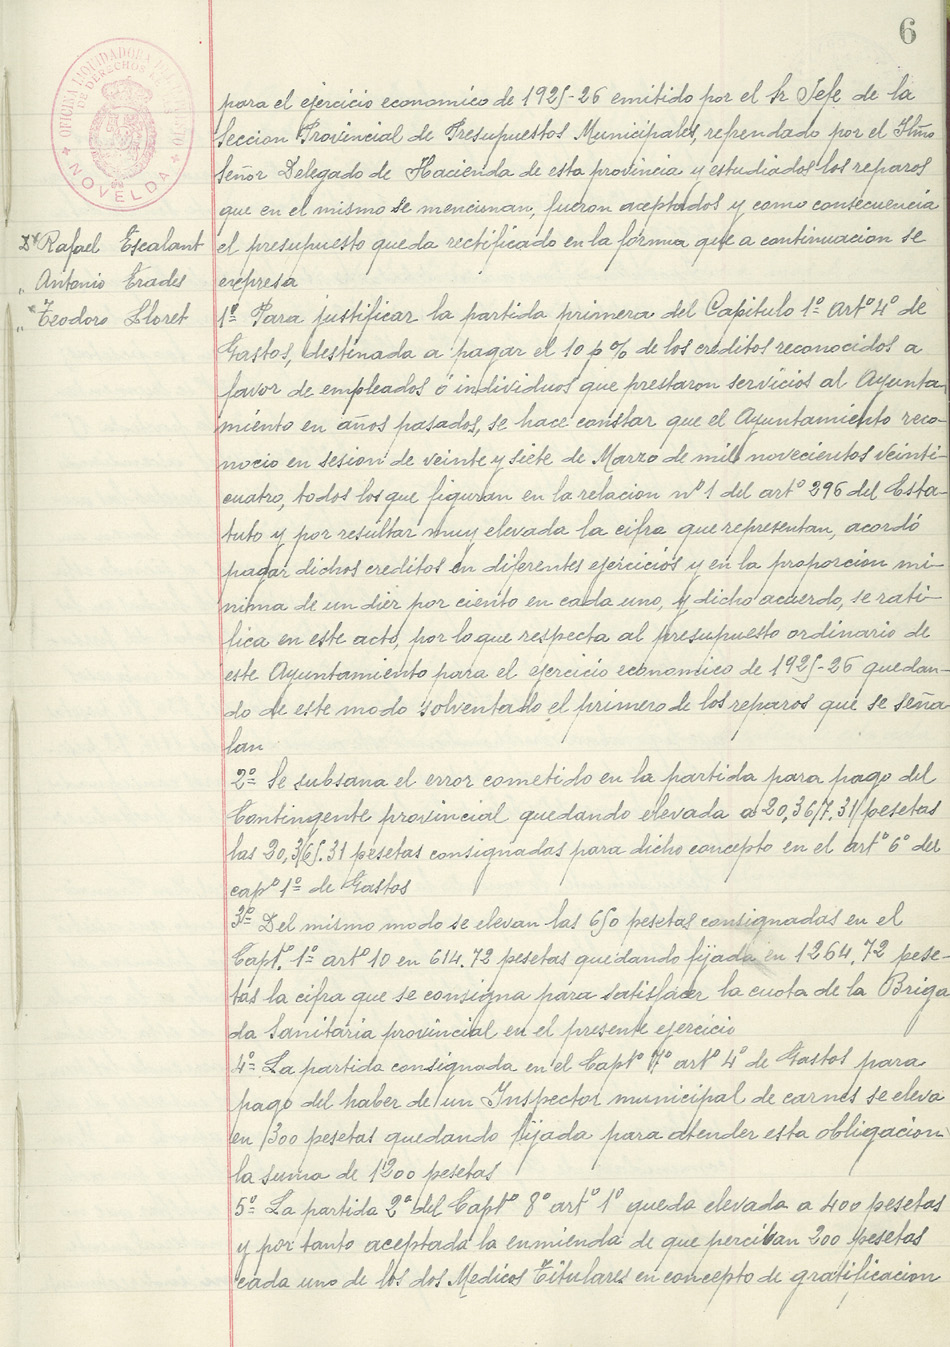 6
OFICINA LIQUIDADORA DEL IMPUESTO
DE DERECHOS REALES
NOVELDA
Dn Rafael Escalant
„ Antonio Erades
„ Teodoro Lloret
para el ejercicio economico de 1925-26 emitido por el Sr Jefe de la
Seccion Provincial de Presupuestos Municipales, refrendado por el Iltmo
Señor Delegado de Hacienda de esta provincia y estudiados los reparos
que en el mismo se mencinan, fueron aceptados y como consecuencia
el presupuesto queda rectificado en la forma que a continuacion se
expresa
1º Para justificar la partida primera del Capitulo 1º artº 4º de
Gastos, destinada a pagar el 10 p % de los creditos reconocidos a
favor de empleados ó individuos que prestaron servicios al Ayunta
miento en años pasados, se hace constar que el Ayuntamiento reco-
nocio en sesion de veinte y siete de Marzo de mil novecientos veinti-
cuatro, todos los que figuran en la relacion nº 1 del artº 296 del Esta-
tuto y por resultar muy elevada la cifra que representan, acordó
pagar dichos creditos en diferentes ejercicios y en la proporcion mi-
nima de un diez por ciento en cada uno, y dicho acuerdo, se rati-
fica en este acto, por lo que respecta al presupuesto ordinario de
este Ayuntamiento para el ejercicio economico de 1925-26 quedan-
do de este modo solventado el primero de los reparos que se seña
lan
2º Se subsana el error cometido en la partida para pago del
Contingente provincial quedando elevada a 20,367.31 pesetas
las 20,365.31 pesetas consignadas para dicho concepto en el artº 6º del
capº 1º de Gastos
3º Del mismo modo se elevan las 650 pesetas consignadas en el
Captº. 1º artº 10 en 614.72 pesetas quedando fijada en 1264,72 pese-
tas la cifra que se consigna para satisfacer la cuota de la Briga
da Sanitaria provincial en el presente ejercicio
4º La partida consignada en el Captº 7º artº 4º de Gastos para
pago del haber de un Inspector municipal de carnes se eleva
en 300 pesetas quedando fijada para atender esta obligacion
la suma de 1200 pesetas
5º La partida 2ª del Captº 8º artº 1º queda elevada a 400 pesetas
y por tanto aceptada la enmienda de que perciban 200 pesetas
cada uno de los dos Medicos Titulares en concepto de gratificacion